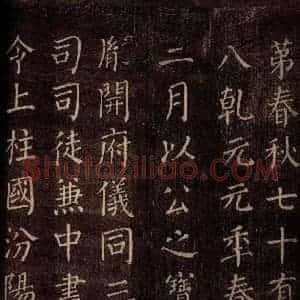 第春秋七十有
八乾元元年春
二月以公之寶
胤開府儀同三
司司徒兼中書
令上柱國汾陽
Shufaziliao.com